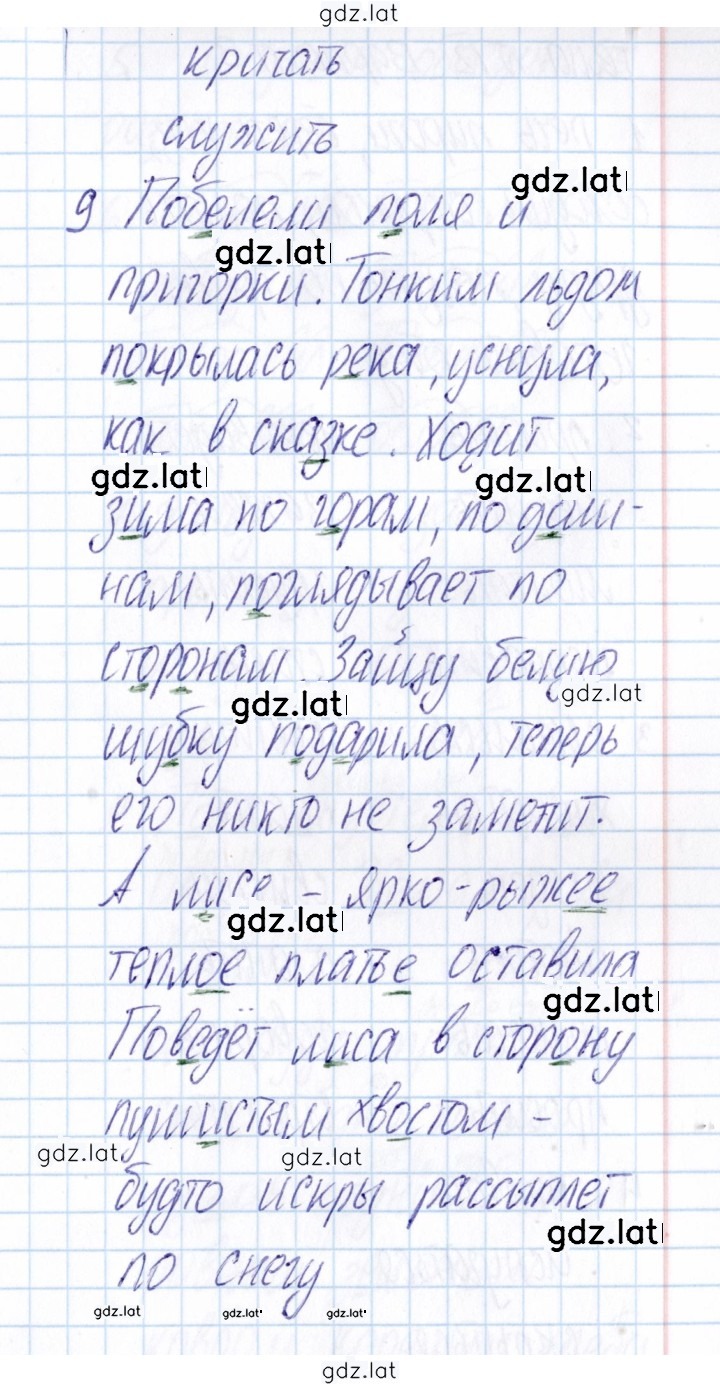 gdz.lat
кричать
служить
gdz.lat
9 Побелели поля и
gdz.lat
пригорки. Тонким льдом
покрылась река, уснула,
как в сказке. Ходит
gdz.lat gdz.lat
зима по горам, по доли-
нам, поглядывает по
сторонам. Зайцу белую
gdz.lat gdz.lat
шубку подарила, теперь
его никто не заметит.
А лисе – ярко-рыжее
gdz.lat
теплое платье оставила
gdz.lat
Поведёт лиса в сторону
пушистым хвостом –
gdz.lat gdz.lat
будто искры рассыплет
gdz.lat
по снегу
gdz.lat gdz.lat gdz.lat
gdz.lat